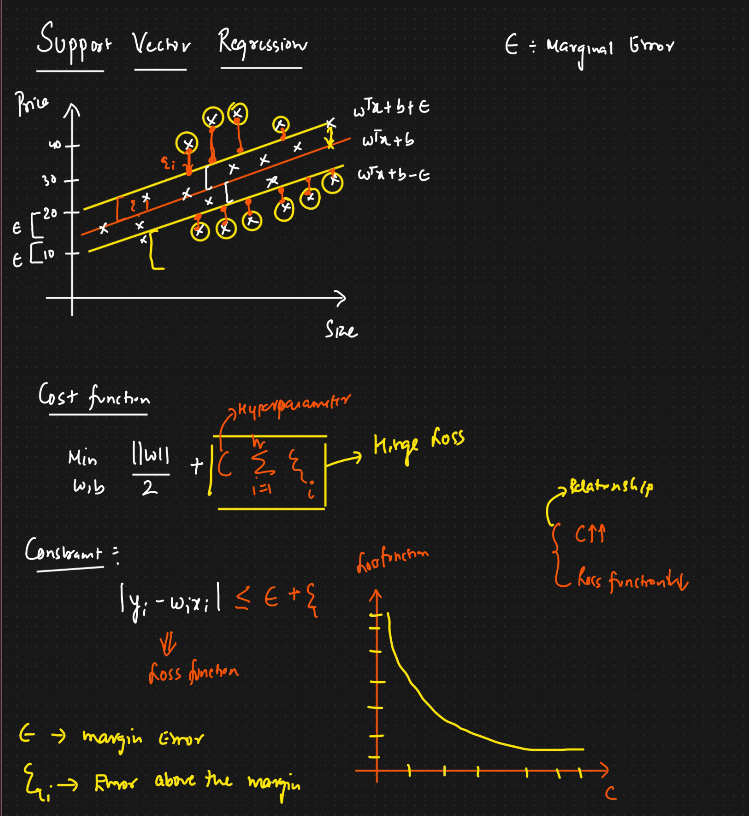 Support Vector Regression
ϵ ÷ Marginal Error
Price
wᵀx+b+ϵ
40
wᵀx+b
ξi
30
wᵀx+b-ϵ
ξ
20
ϵ
ϵ
10
Size
Cost function
Hyperparameter
Min ||w|| + C n Σ ξi
w,b 2 i=1
Hinge Loss
Relationship
C↑↑
Loss function↓↓
Constraint :
|yi - wixi| ≤ ϵ + ξ
⇓
Loss function
Loss function
ϵ → margin Error
ξi → Error above the margin
C